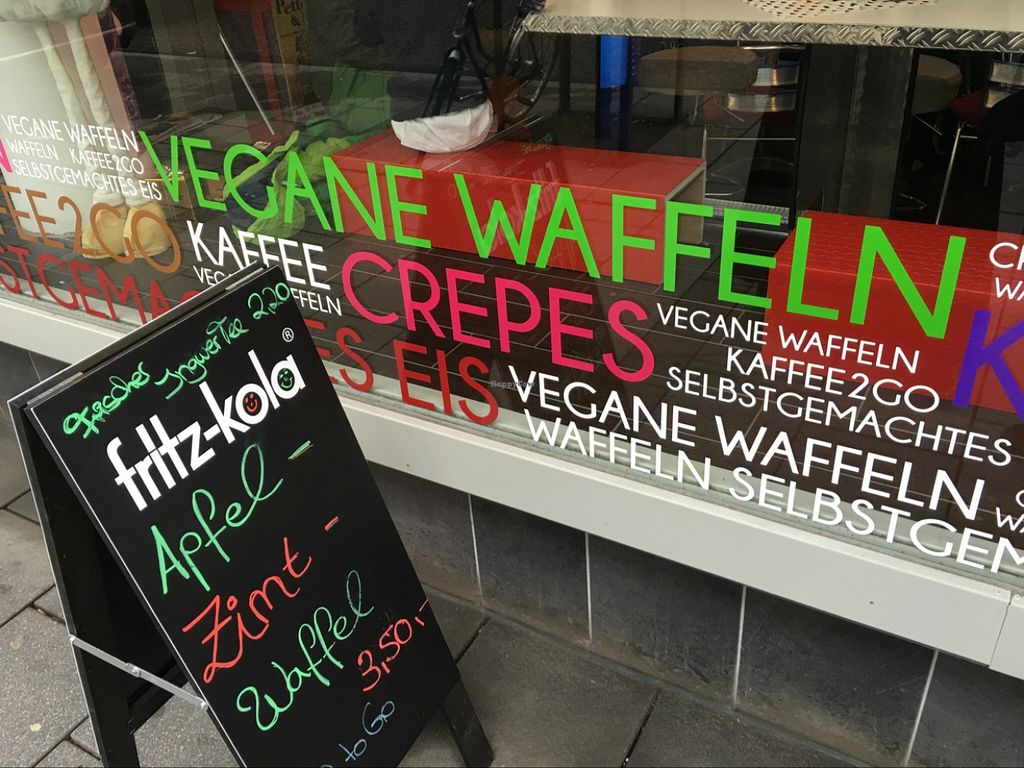 VEGANE WAFFELN
WAFFELN KAFFEE2GO
SELBSTGEMACHTES EIS
VEGANE WAFFELN
FEE2GO
KAFFEE
CREPES
VEGANE WAFFELN
KAFFEE2GO
SELBSTGEMACHTES
STGEMA
ES EIS
VEGANE WAFFELN
WAFFELN SELBSTGEM
frischer Ingwertee 2,20
fritz-kola®
Apfel-
Zimt-
Waffel
3,50,-
to Go